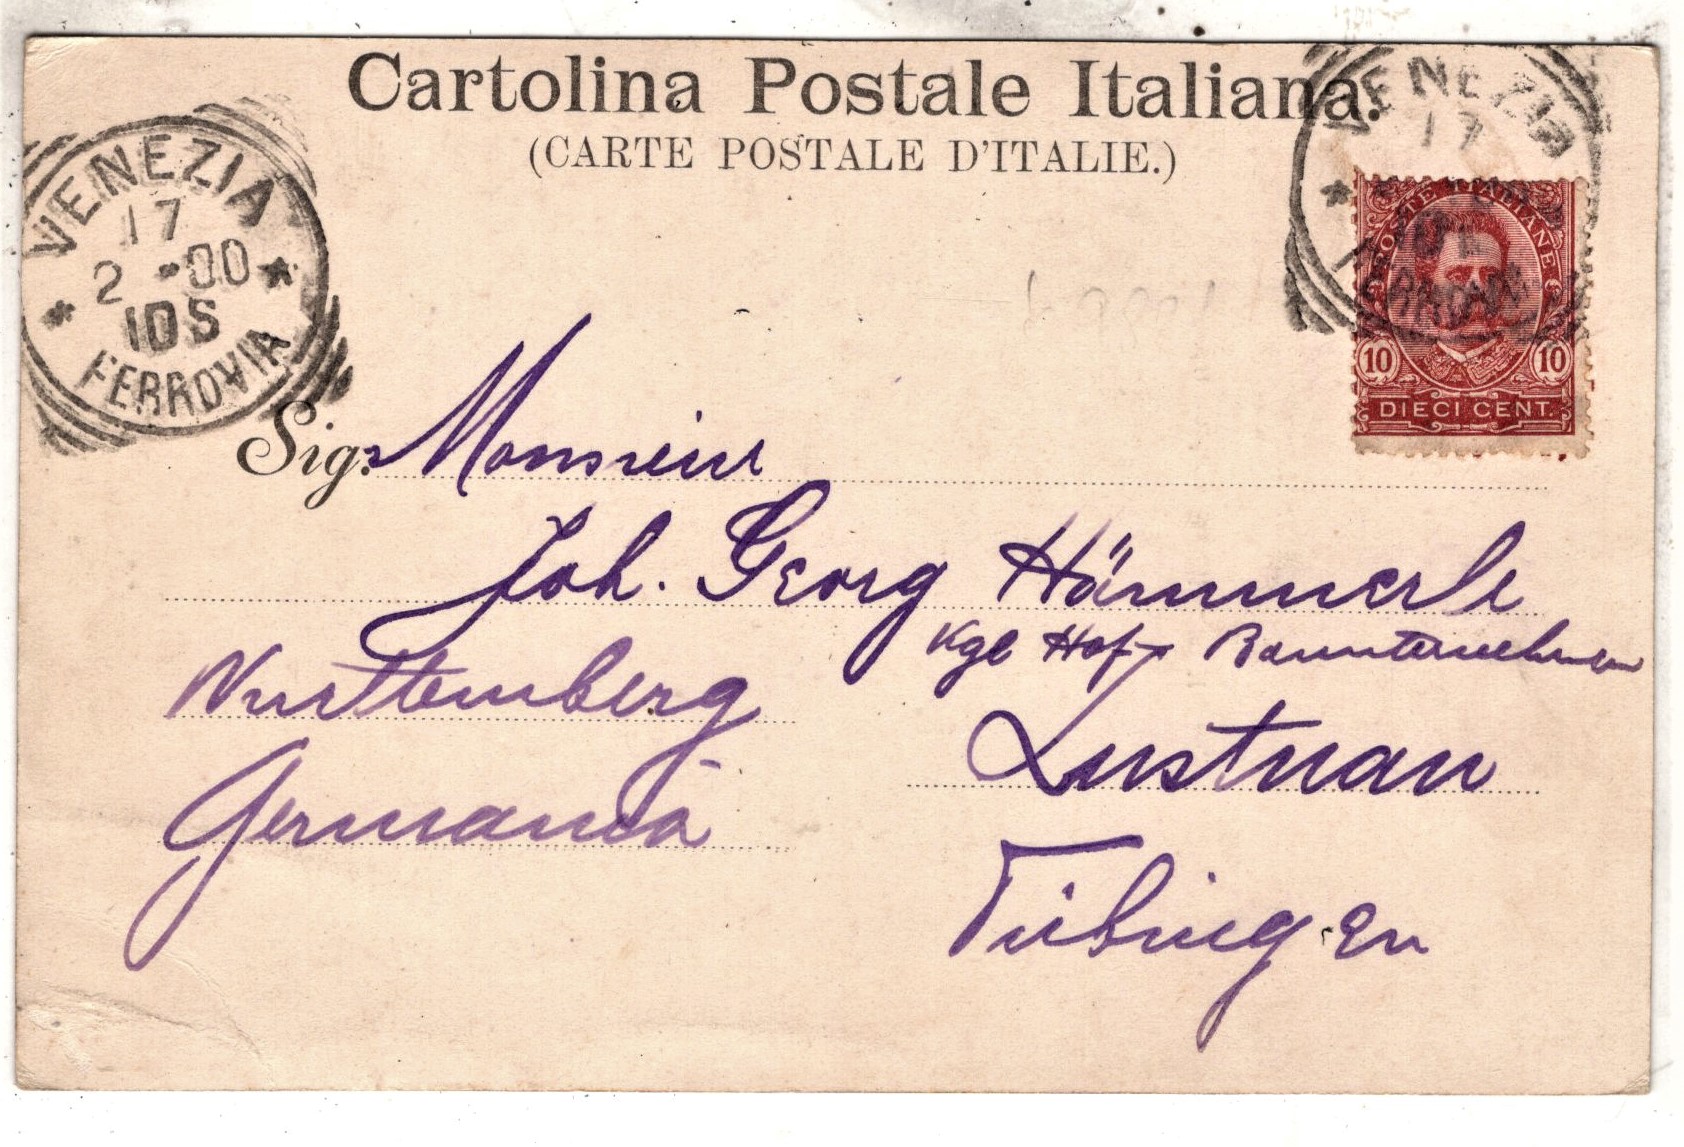 Cartolina Postale Italiana.
(CARTE POSTALE D'ITALIE.)
VENEZIA
17
2 -00
10S
FERROVIA
VENEZIA
17
POSTE ITALIANE
10 10
DIECI CENT.
Sig. Monsieur
Joh. Georg Hämmerle
Kgl Hof
Lustnau
Tübingen
Württemberg
Germania